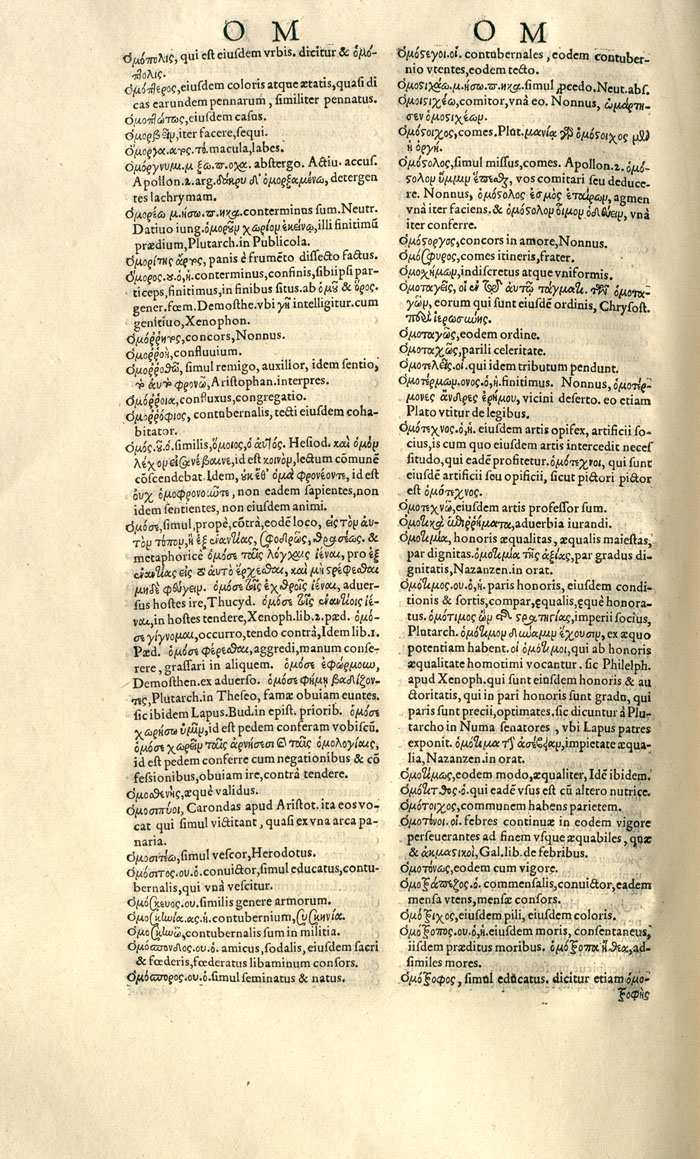 O M
Ὁμόπολις, qui est eiusdem vrbis. dicitur & ὁμό-
πολις.
Ὁμόπτερος, eiusdem coloris atque ætatis, quasi di
cas earundem pennarum, similiter pennatus.
Ὁμοπτώτως, eiusdem casus.
iter facere, sequi.
macula, labes.
abstergo. Actiu. accus.
Apollon. 2. arg. δάκρυ δ' ὀμορξαμένω, detergen
tes lachrymam.
Ὁμορέω μ. ήσω. π. ηκα. conterminus sum. Neutr.
Datiuo iung. ὁμορεῖν χωρίον ἐκείνῳ, illi finitimũ
prædium, Plutarch. in Publicola.
Ὁμορίτης ἄρτος, panis è frumẽto dissecto factus.
Ὅμορος. ου. ὁ, ἡ. conterminus, confinis, sibiipsi par-
ticeps, finitimus, in finibus situs. ab ὁμοῦ & ὅρος.
gener. fœm. Demosthe. vbi γῆ intelligitur. cum
genitiuo, Xenophon.
concors, Nonnus.
Ὁμορροή, confluuium.
Ὁμορροθῶ, simul remigo, auxilior, idem sentio,
τὸ αὐτὸ φρονῶ, Aristophan. interpres.
Ὁμόρροια, confluxus, congregatio.
Ὁμορρόφιος, contubernalis, tecti eiusdem coha-
bitator.
Ὁμός. οῦ. ὁ. similis, ὅμοιος, ὁ αὐτός. Hesiod. καὶ ὁμὸν
λέχος εἰσανέβαινε, id est κοινὸν, lectum cõmunẽ
cõscendebat. Idem, οὐκ ἔθ' ὁμὰ φρονέοντε, id est
οὐχ ὁμοφρονοῦντε, non eadem sapientes, non
idem sentientes, non eiusdem animi.
Ὁμόσε, simul, propè, cõtrà, eodẽ loco, εἰς τὸν αὐ-
τὸν τόπον, ἢ ἐξ ἐναντίας, σφοδρῶς, θρασέως. &
metaphoricè ὁμόσε ταῖς λόγχαις ἰέναι, pro ἐξ
ἐναντίας εἰς τὸ αὐτὸ ἔρχεσθαι, καὶ μὴ τρέφεσθαι
μηδὲ φεύγειν. ὁμόσε τοῖς ἐχθροῖς ἰέναι, aduer-
sus hostes ire, Thucyd. ὁμόσε τοῖς ἐναντίοις ἰέ-
ναι, in hostes tendere, Xenoph. lib. 2. pæd. ὁμό-
σε γίγνομαι, occurro, tendo contrà, Idem lib. 1.
Pæd. ὁμόσε φέρεσθαι, aggredi, manum conse-
rere, grassari in aliquem. ὁμόσε ἐφώρμουν,
Demosthen. ex aduerso. ὁμόσε φήμῃ βαδίζον-
τες, Plutarch. in Theseo, famæ obuiam euntes.
sic ibidem Lapus. Bud. in epist. priorib. ὁμόσε
χωρήσω ὑμῖν, id est pedem conferam vobiscũ.
ὁμόσε χωρεῖν ταῖς ἀρνήσεσι καὶ ταῖς ὁμολογίαις,
id est pedem conferre cum negationibus & cõ
fessionibus, obuiam ire, contrà tendere.
Ὁμοσθενὴς, æquè validus.
Ὁμοσίπυοι, Carondas apud Aristot. ita eos vo-
cat qui simul victitant, quasi ex vna arca pa-
naria.
Ὁμοσιτέω, simul vescor, Herodotus.
Ὁμόσιτος. ου. ὁ. conuictor, simul educatus, contu-
bernalis, qui vnà vescitur.
Ὁμόσκευος. ου. similis genere armorum.
Ὁμοσκηνία. ας. ἡ. contubernium, συσκηνία.
Ὁμοσκηνῶ, contubernalis sum in militia.
Ὁμόσπονδος. ου. ὁ. amicus, sodalis, eiusdem sacri
& fœderis, fœderatus libaminum consors.
Ὁμόσπορος. ου. ὁ. simul seminatus & natus.
O M
Ὁμόστεγοι. οἱ. contubernales, eodem contuber-
nio vtentes, eodem tecto.
Ὁμοστιχάω. μ. ήσω. π. ηκα. simul ꝓcedo. Neut. abs.
Ὁμοστιχέω, comitor, vnà eo. Nonnus, ὡμάρτη-
σεν ὁμοστιχέων.
Ὁμόστοιχος, comes. Plut. μανία γὰρ ὁμόστοιχος μὲν
ἡ ὀργή.
Ὁμόστολος, simul missus, comes. Apollon. 2. ὁμό-
στολον ὔμμιν ἕπεσθαι, vos comitari seu deduce-
re. Nonnus, ὁμόστολος ἑσμὸς ἑταίρων, agmen
vnà iter faciens. & ὁμόστολον οἶμον ὁδεύειν, vnà
iter conferre.
Ὁμόστοργος, concors in amore, Nonnus.
Ὁμόσφυρος, comes itineris, frater.
Ὁμοσχήμων, indiscretus atque vniformis.
Ὁμοταγεῖς, οἱ ἐν τῷ αὐτῷ τάγματι. τῶν ὁμοτα-
γῶν, eorum qui sunt eiusdẽ ordinis, Chrysost.
περὶ ἱερωσύνης.
Ὁμοταγῶς, eodem ordine.
Ὁμοταχῶς, parili celeritate.
Ὁμοτελεῖς. οἱ. qui idem tributum pendunt.
Ὁμοτέρμων. ονος. ὁ, ἡ. finitimus. Nonnus, ὁμοτέρ-
μονες ἄνδρες ἐρήμου, vicini deserto. eo etiam
Plato vtitur de legibus.
Ὁμότεχνος. ὁ, ἡ. eiusdem artis opifex, artificii so-
cius, is cum quo eiusdem artis intercedit neces
situdo, qui eadẽ profitetur. ὁμότεχνοι, qui sunt
eiusdẽ artificii seu opificii, sicut pictori pictor
est ὁμότεχνος.
Ὁμοτεχνῶ, eiusdem artis professor sum.
Ὁμοτικὰ ἐπιρρήματα, aduerbia iurandi.
Ὁμοτιμία, honoris æqualitas, æqualis maiestas,
par dignitas. ὁμοτιμία τῆς ἀξίας, par gradus di-
gnitatis, Nazanzen. in orat.
Ὁμότιμος. ου. ὁ, ἡ. paris honoris, eiusdem condi-
tionis & sortis, compar, ęqualis, ęquè honora-
tus. ὁμότιμος ὢν τῆς στρατηγίας, imperii socius,
Plutarch. ὁμότιμον δύναμιν ἔχουσιν, ex æquo
potentiam habent. οἱ ὁμότιμοι, qui ab honoris
æqualitate homotimi vocantur. sic Philelph.
apud Xenoph. qui sunt eiusdem honoris & au
ctoritatis, qui in pari honoris sunt gradu, qui
paris sunt precii, optimates. sic dicuntur à Plu-
tarcho in Numa senatores, vbi Lapus patres
exponit. ὁμότιμα τῇ ἀσεβείᾳ, impietate æqua-
lia, Nazanzen. in orat.
Ὁμοτίμως, eodem modo, æqualiter, Idẽ ibidem.
Ὁμότιτθος. ὁ. qui eadẽ vsus est cũ altero nutrice.
Ὁμότοιχος, communem habens parietem.
Ὁμότονοι. οἱ. febres continuæ in eodem vigore
perseuerantes ad finem vsque æquabiles, quæ
& ἀκμαστικοὶ, Gal. lib. de febribus.
Ὁμοτόνως, eodem cum vigore.
Ὁμοτράπεζος. ὁ. commensalis, conuictor, eadem
mensa vtens, mensæ consors.
Ὁμότριχος, eiusdem pili, eiusdem coloris.
Ὁμότροπος. ου. ὁ, ἡ. eiusdem moris, consentaneus,
iisdem præditus moribus. ὁμότροπα ἤθεα, ad-
similes mores.
Ὁμότροφος, simul educatus. dicitur etiam ὁμο-
τροφὴς